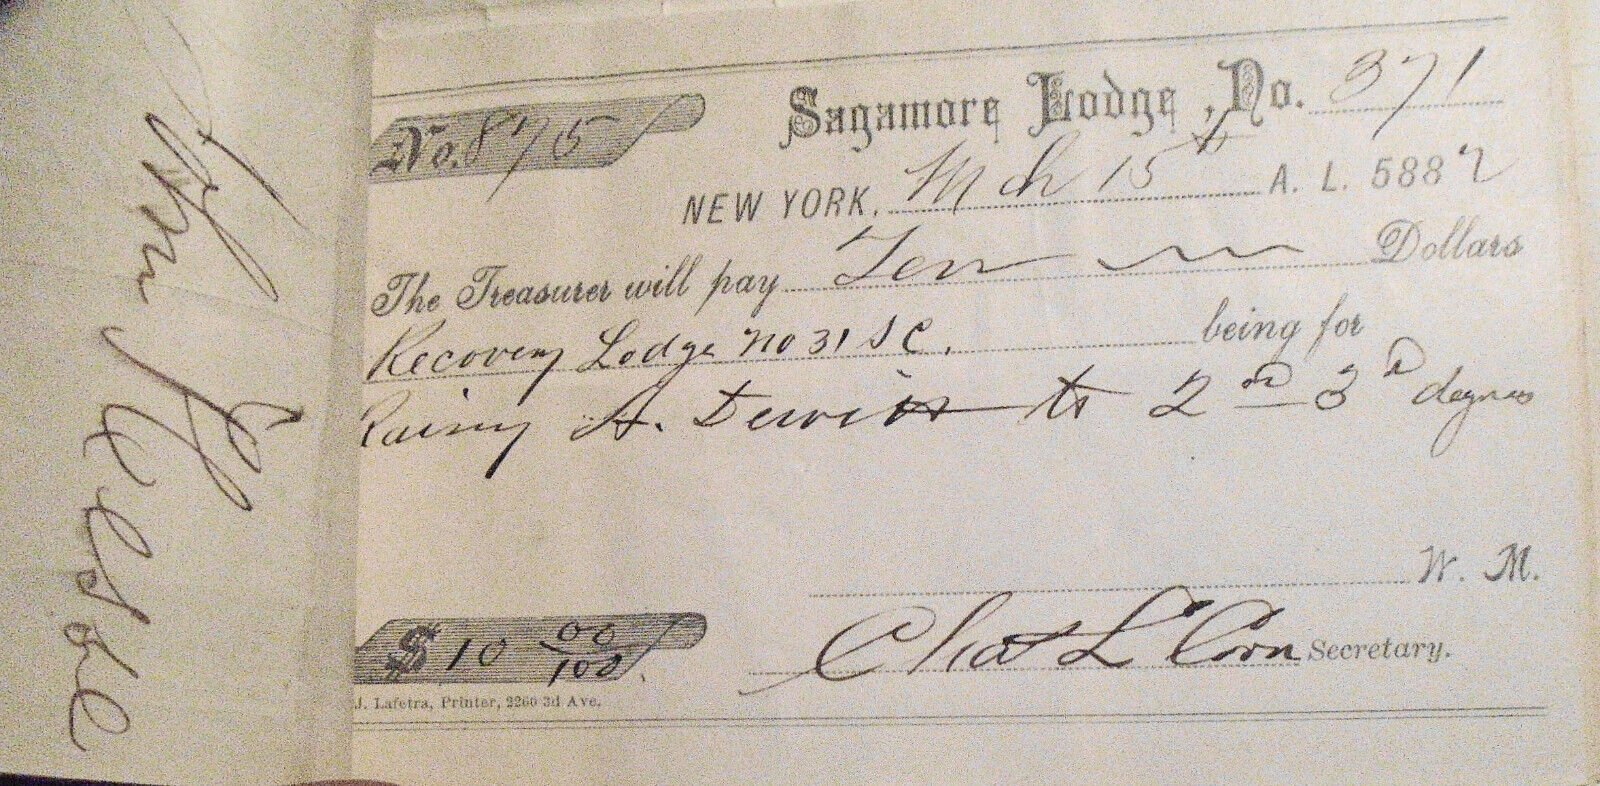 Sagamore Lodge, No. 371
No. 875
NEW YORK, Mch 15th A. L. 5882
The Treasurer will pay Ten Dollars
Recovery Lodge No 31 S C. being for
Raising A. Dewitt to 2nd 3d degrees
W. M.
$10 00/100
Chas L Corn Secretary.
J. Lafetra, Printer, 2260 3d Ave.
Wm